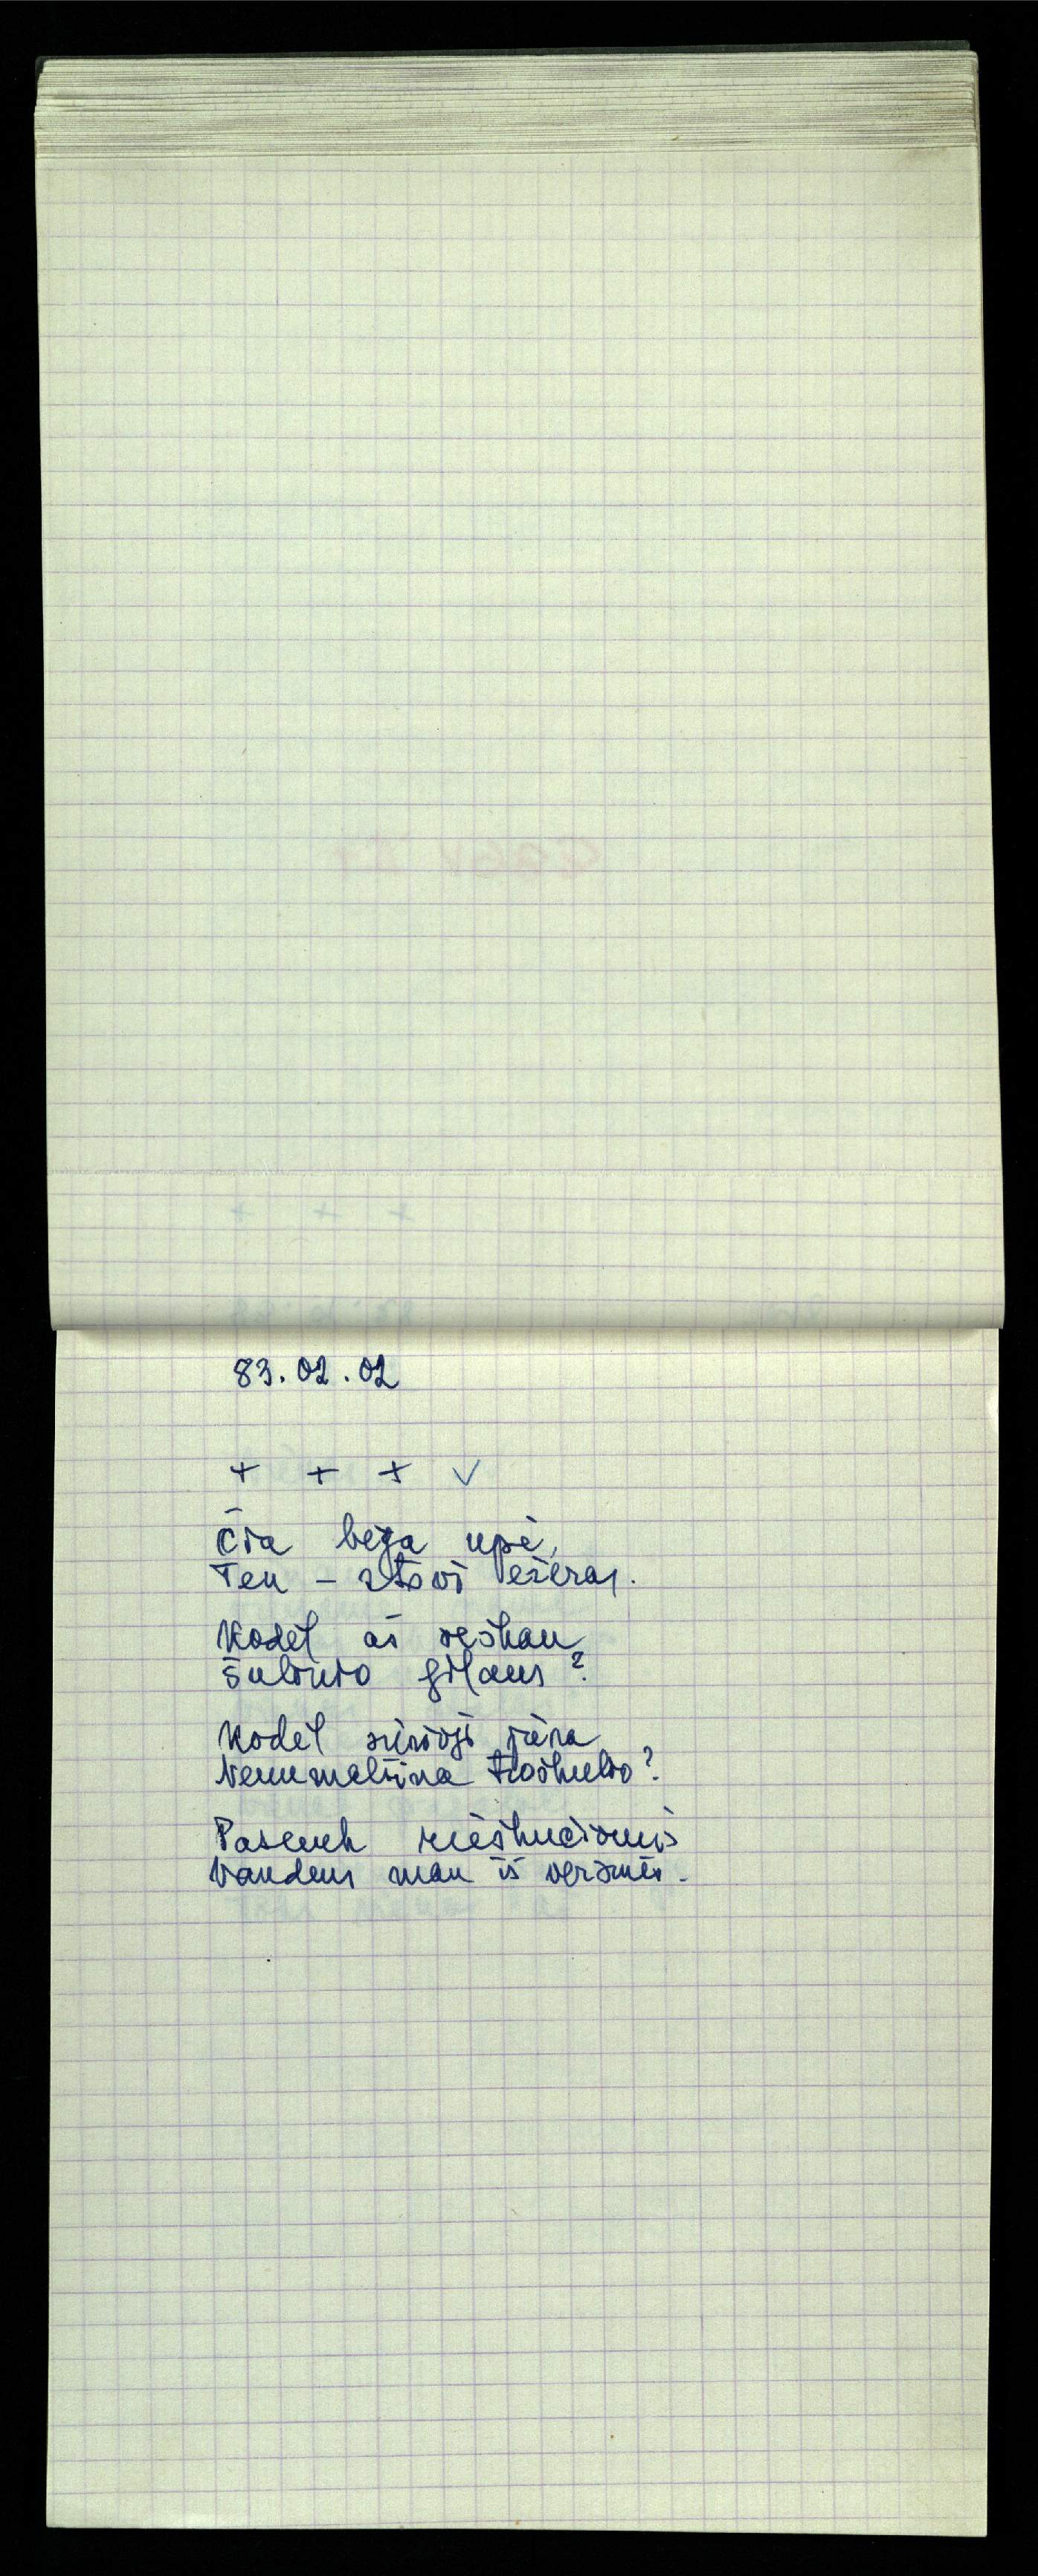 83.02.02
+ + + ✓
Čia bėga upė,
Ten – stovi ežeras.
Kodėl aš ieškau
Šulinio gilaus?
Kodėl sūrioji jūra
Nenumalšina troškulio?
Pasemk rieškučiomis
Vandens man iš versmės.